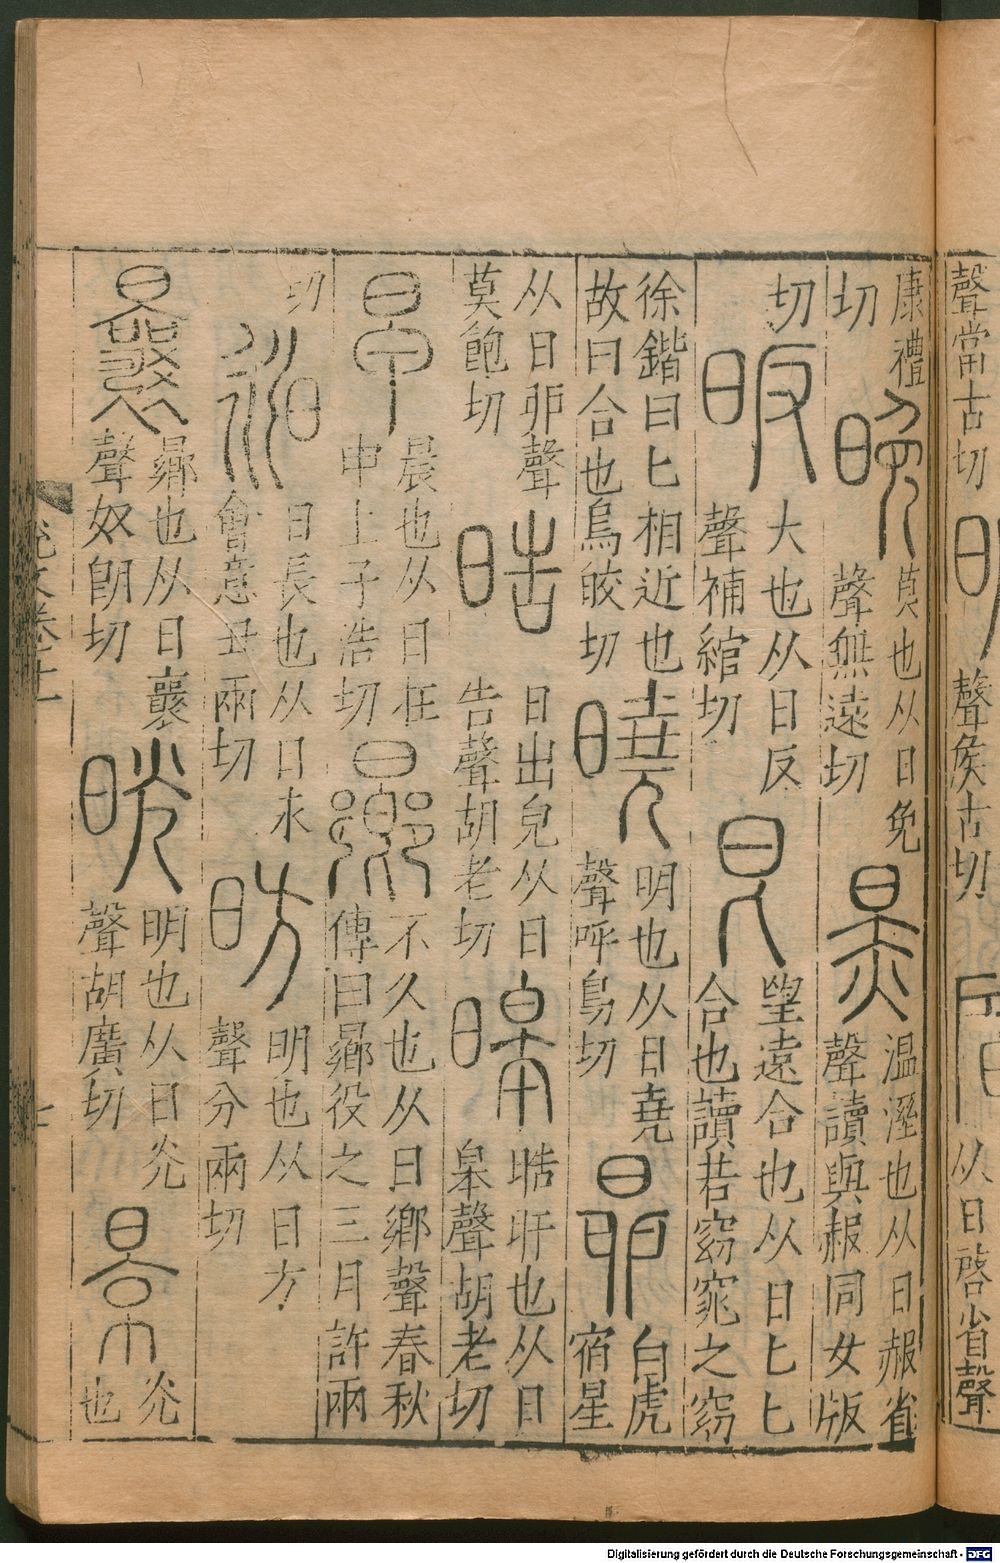 聲當古切
聲矦古切
从日啓省聲
康禮
切
晚
莫也从日免
聲無遠切
㬈
温溼也从日赧省
聲讀與赧同女版
切
昄
大也从日反
聲補綰切
㫐
望遠合也从日匕匕
合也讀若窈窕之窈
徐鍇曰匕相近也
故曰合也烏皎切
曉
明也从日堯
聲呼鳥切
昴
白虎
宿星
从日卯聲
莫飽切
晧
日出皃从日
告聲胡老切
暭
晧旰也从日
皋聲胡老切
早
晨也从日在
甲上子浩切
曏
不久也从日鄉聲春秋
傳曰曏役之三月許兩
切
昶
日長也从日永
會意丑兩切
昉
明也从日方
聲分兩切
曩
曏也从日襄
聲奴朗切
晄
明也从日光
聲胡廣切
景
光
也
Digitalisierung gefördert durch die Deutsche Forschungsgemeinschaft - DFG